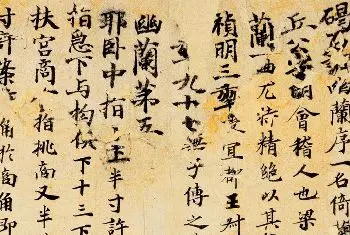 碣石調幽蘭序一名倚
丘公字明會稽人也梁
蘭一曲尤特精絕以其
禎明三年授宜都王叔
年九十七無子傳之
幽蘭第五
耶臥中指十上半寸許
指急下与构俱下十三下
扶宮商食指挑商又半
寸許案商角於商角即